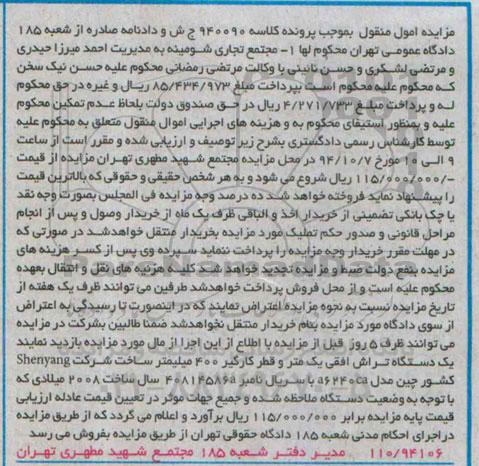 مزایده اموال منقول بموجب پرونده کلاسه ۹۴۰۰۹۰ ج ش و دادنامه صادره از شعبه ۱۸۵
دادگاه عمومی تهران محکوم لها ۱- مجتمع تجاری شومینه به مدیریت احمد میرزا حیدری
و مرتضی لشگری و حسن نائینی با وکالت مرتضی رمضانی محکوم علیه حسن نیک سخن
که محکوم علیه محکوم است بپرداخت مبلغ ۸۵/۴۳۴/۹۷۳ ریال و غیره در حق محکوم
له و پرداخت مبلغ ۴/۲۷۱/۷۳۳ ریال در حق صندوق دولت بلحاظ عدم تمکین محکوم
علیه و بمنظور استیفای محکوم به و هزینه های اجرایی اموال منقول متعلق به محکوم علیه
توسط کارشناس رسمی دادگستری بشرح زیر توصیف و ارزیابی شده و مقرر است از ساعت
۹ الی ۱۰ مورخ ۹۴/۱۰/۷ در محل مزایده مجتمع شهید مطهری تهران مزایده از قیمت
۱۱۵/۰۰۰/۰۰۰/- ریال شروع می شود و به هر شخص حقیقی و حقوقی که بالاترین قیمت
را پیشنهاد نماید فروخته خواهد شد ده درصد وجه مزایده فی المجلس بصورت وجه نقد
یا چک بانکی تضمینی از خریدار اخذ و الباقی ظرف یک ماه از خریدار وصول و پس از انجام
مراحل قانونی و صدور حکم تملیک مورد مزایده بخریدار منتقل خواهدشد در صورتی که
در مهلت مقرر خریدار وجه مزایده را پرداخت ننماید سپرده وی پس از کسر هزینه های
مزایده بنفع دولت ضبط و مزایده تجدید خواهد شد کلیه هزینه های نقل و انتقال بعهده
محکوم علیه است و از محل فروش پرداخت خواهدشد طرفین می توانند ظرف یک هفته از
تاریخ مزایده نسبت به نحوه مزایده اعتراض نمایند که در اینصورت تا رسیدگی به اعتراض
از سوی دادگاه مورد مزایده بنام خریدار منتقل نخواهدشد ضمنا طالبین بشرکت در مزایده
می توانند ظرف ۵ روز قبل از مزایده با اطلاع از این اجرا از مال مورد مزایده بازدید نمایند
یک دستگاه تراش افقی یک متر و قطر کارگیر ۴۰۰ میلیمتر ساخت شرکت Shenyang
کشور چین مدل a۶۲۴۰ca با سریال نامبر ۴۰۸۱۴۵۸۶a سال ساخت ۲۰۰۸ میلادی که
با توجه به وضعیت دستگاه ملاحظه شده و جمیع جهات موثر در تعیین قیمت عادله ارزیابی
قیمت پایه مزایده برابر ۱۱۵/۰۰۰/۰۰۰ ریال برآورد و اعلام می گردد که از طریق مزایده
در اجرای احکام مدنی شعبه ۱۸۵ دادگاه حقوقی تهران از طریق مزایده بفروش می رسد
۱۱۰/۹۴۱۰۶ مدیر دفتر شعبه ۱۸۵ مجتمع شهید مطهری تهران